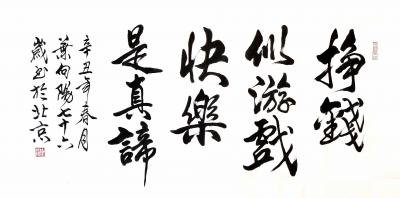 挣錢
似游戲
快樂
是真諦
辛丑年春月
葉向陽七十六
歲書於北京